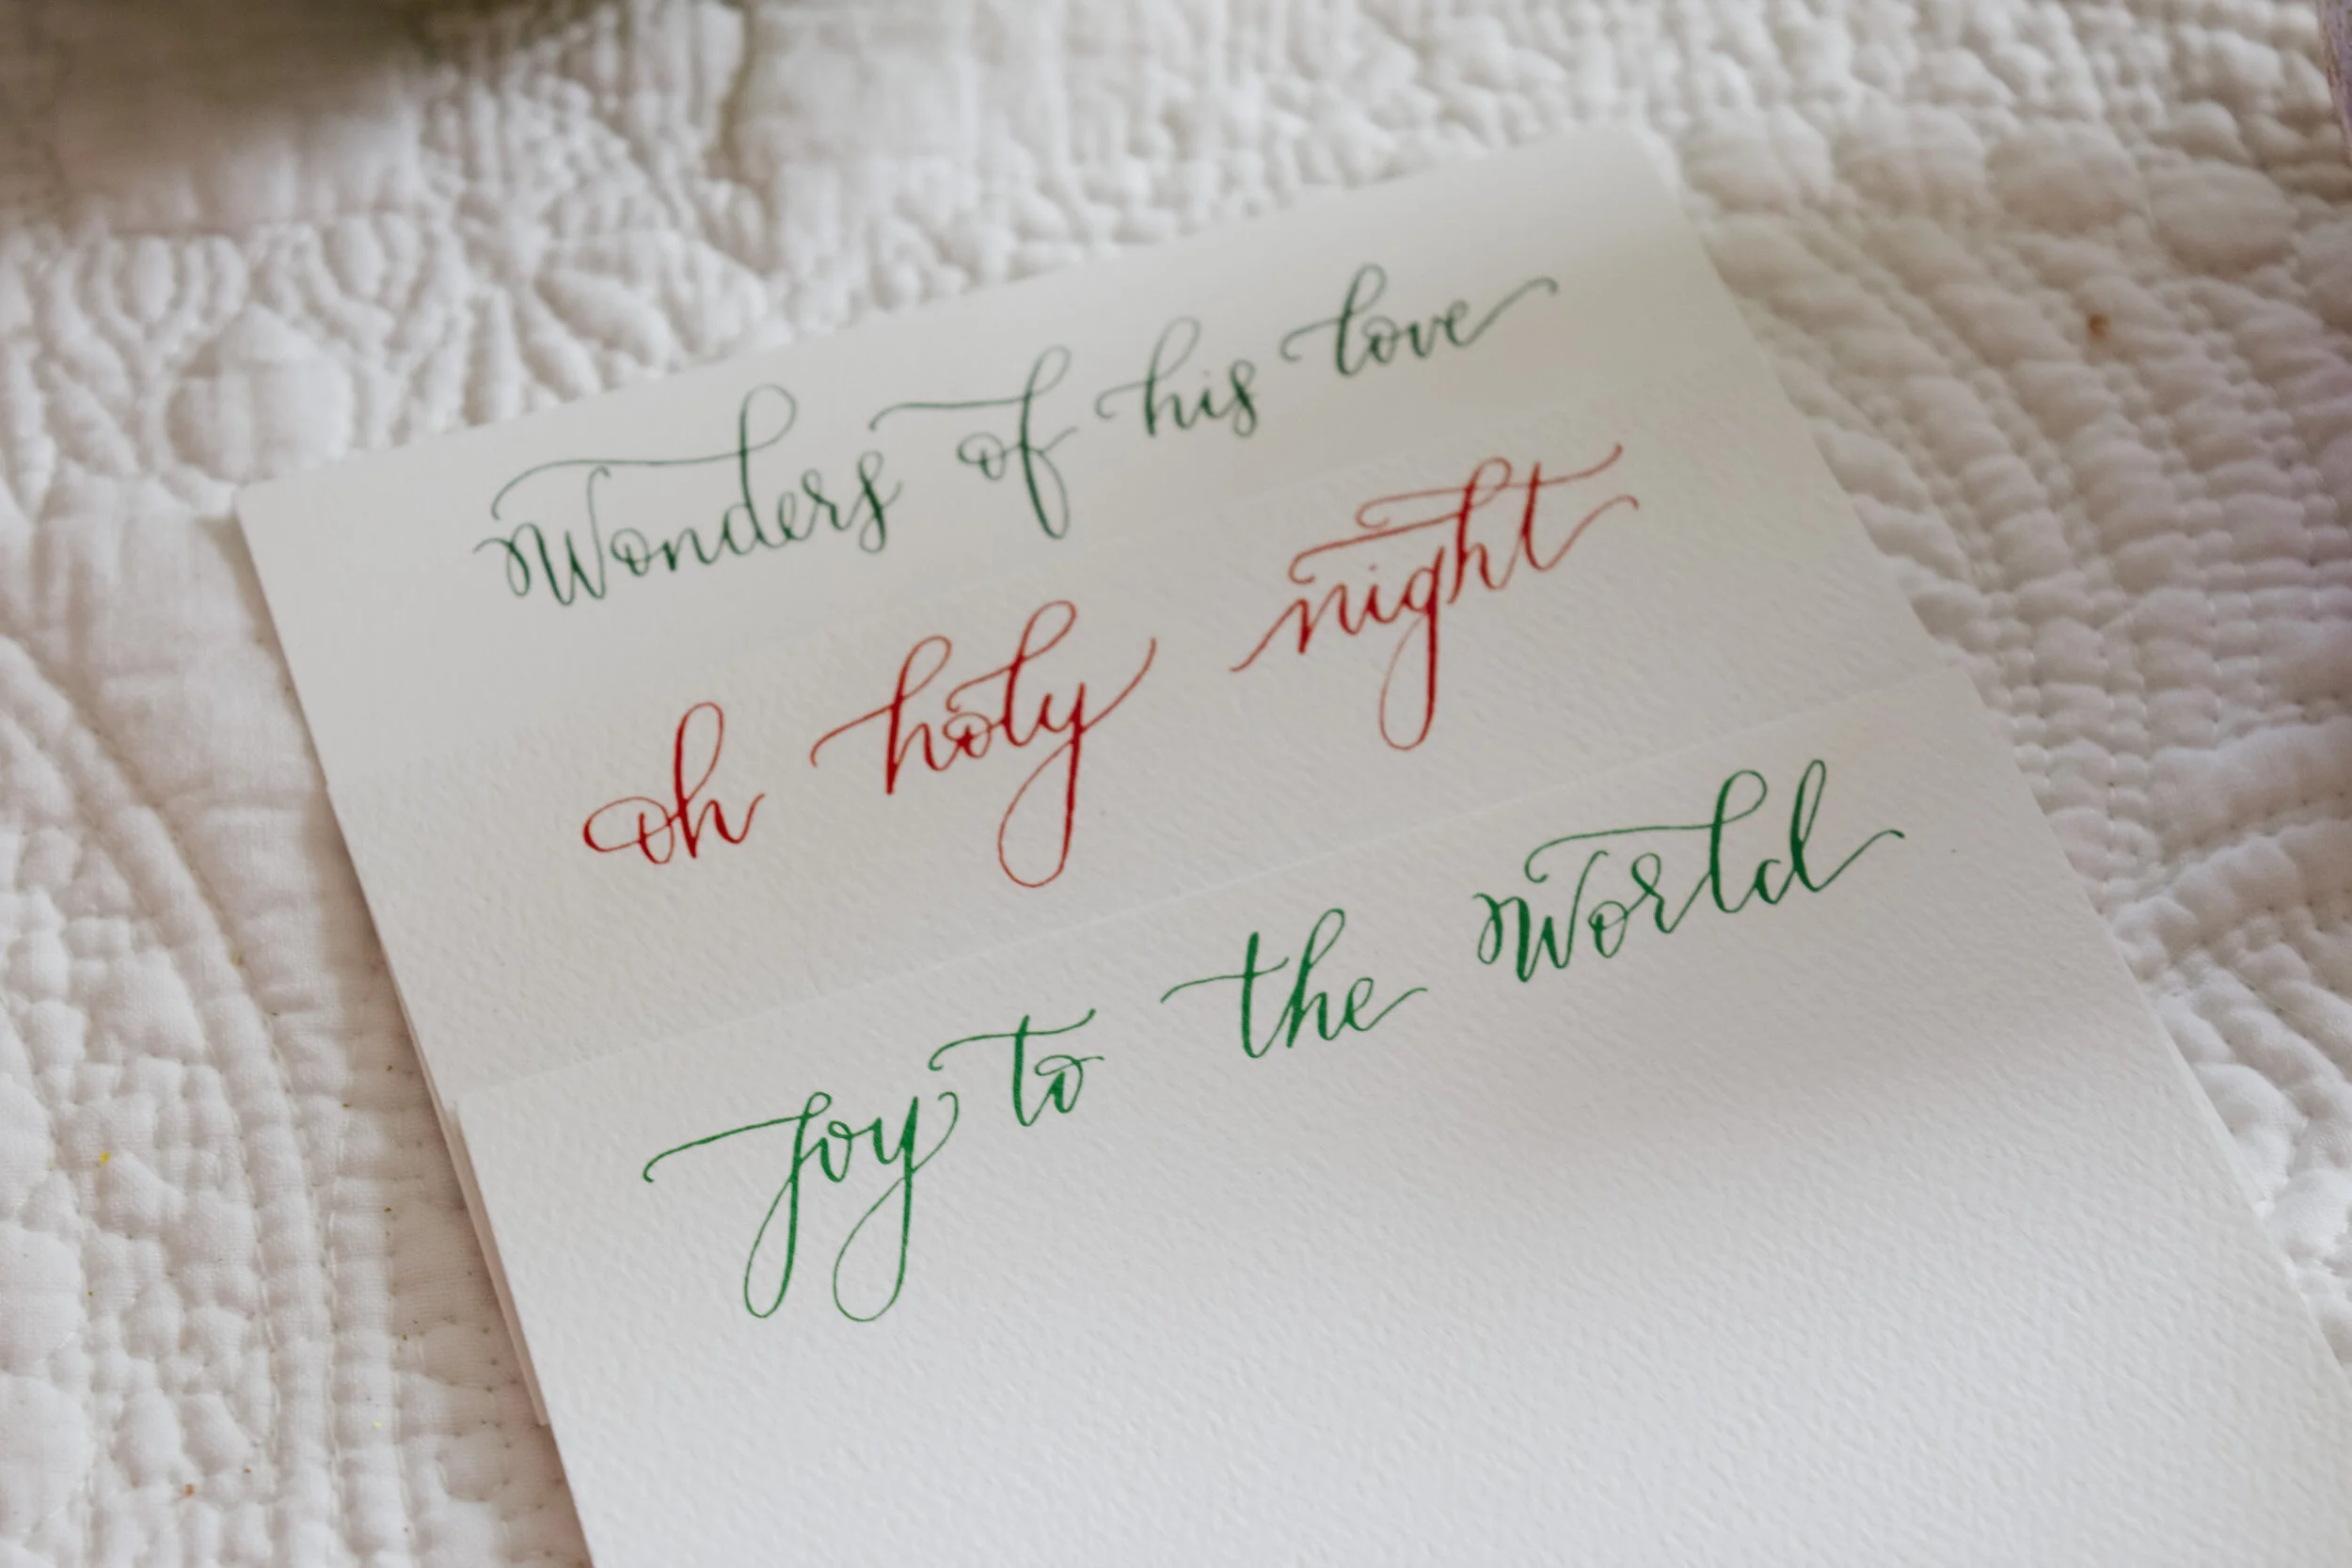 Wonders of his love
oh holy night
Joy to the World